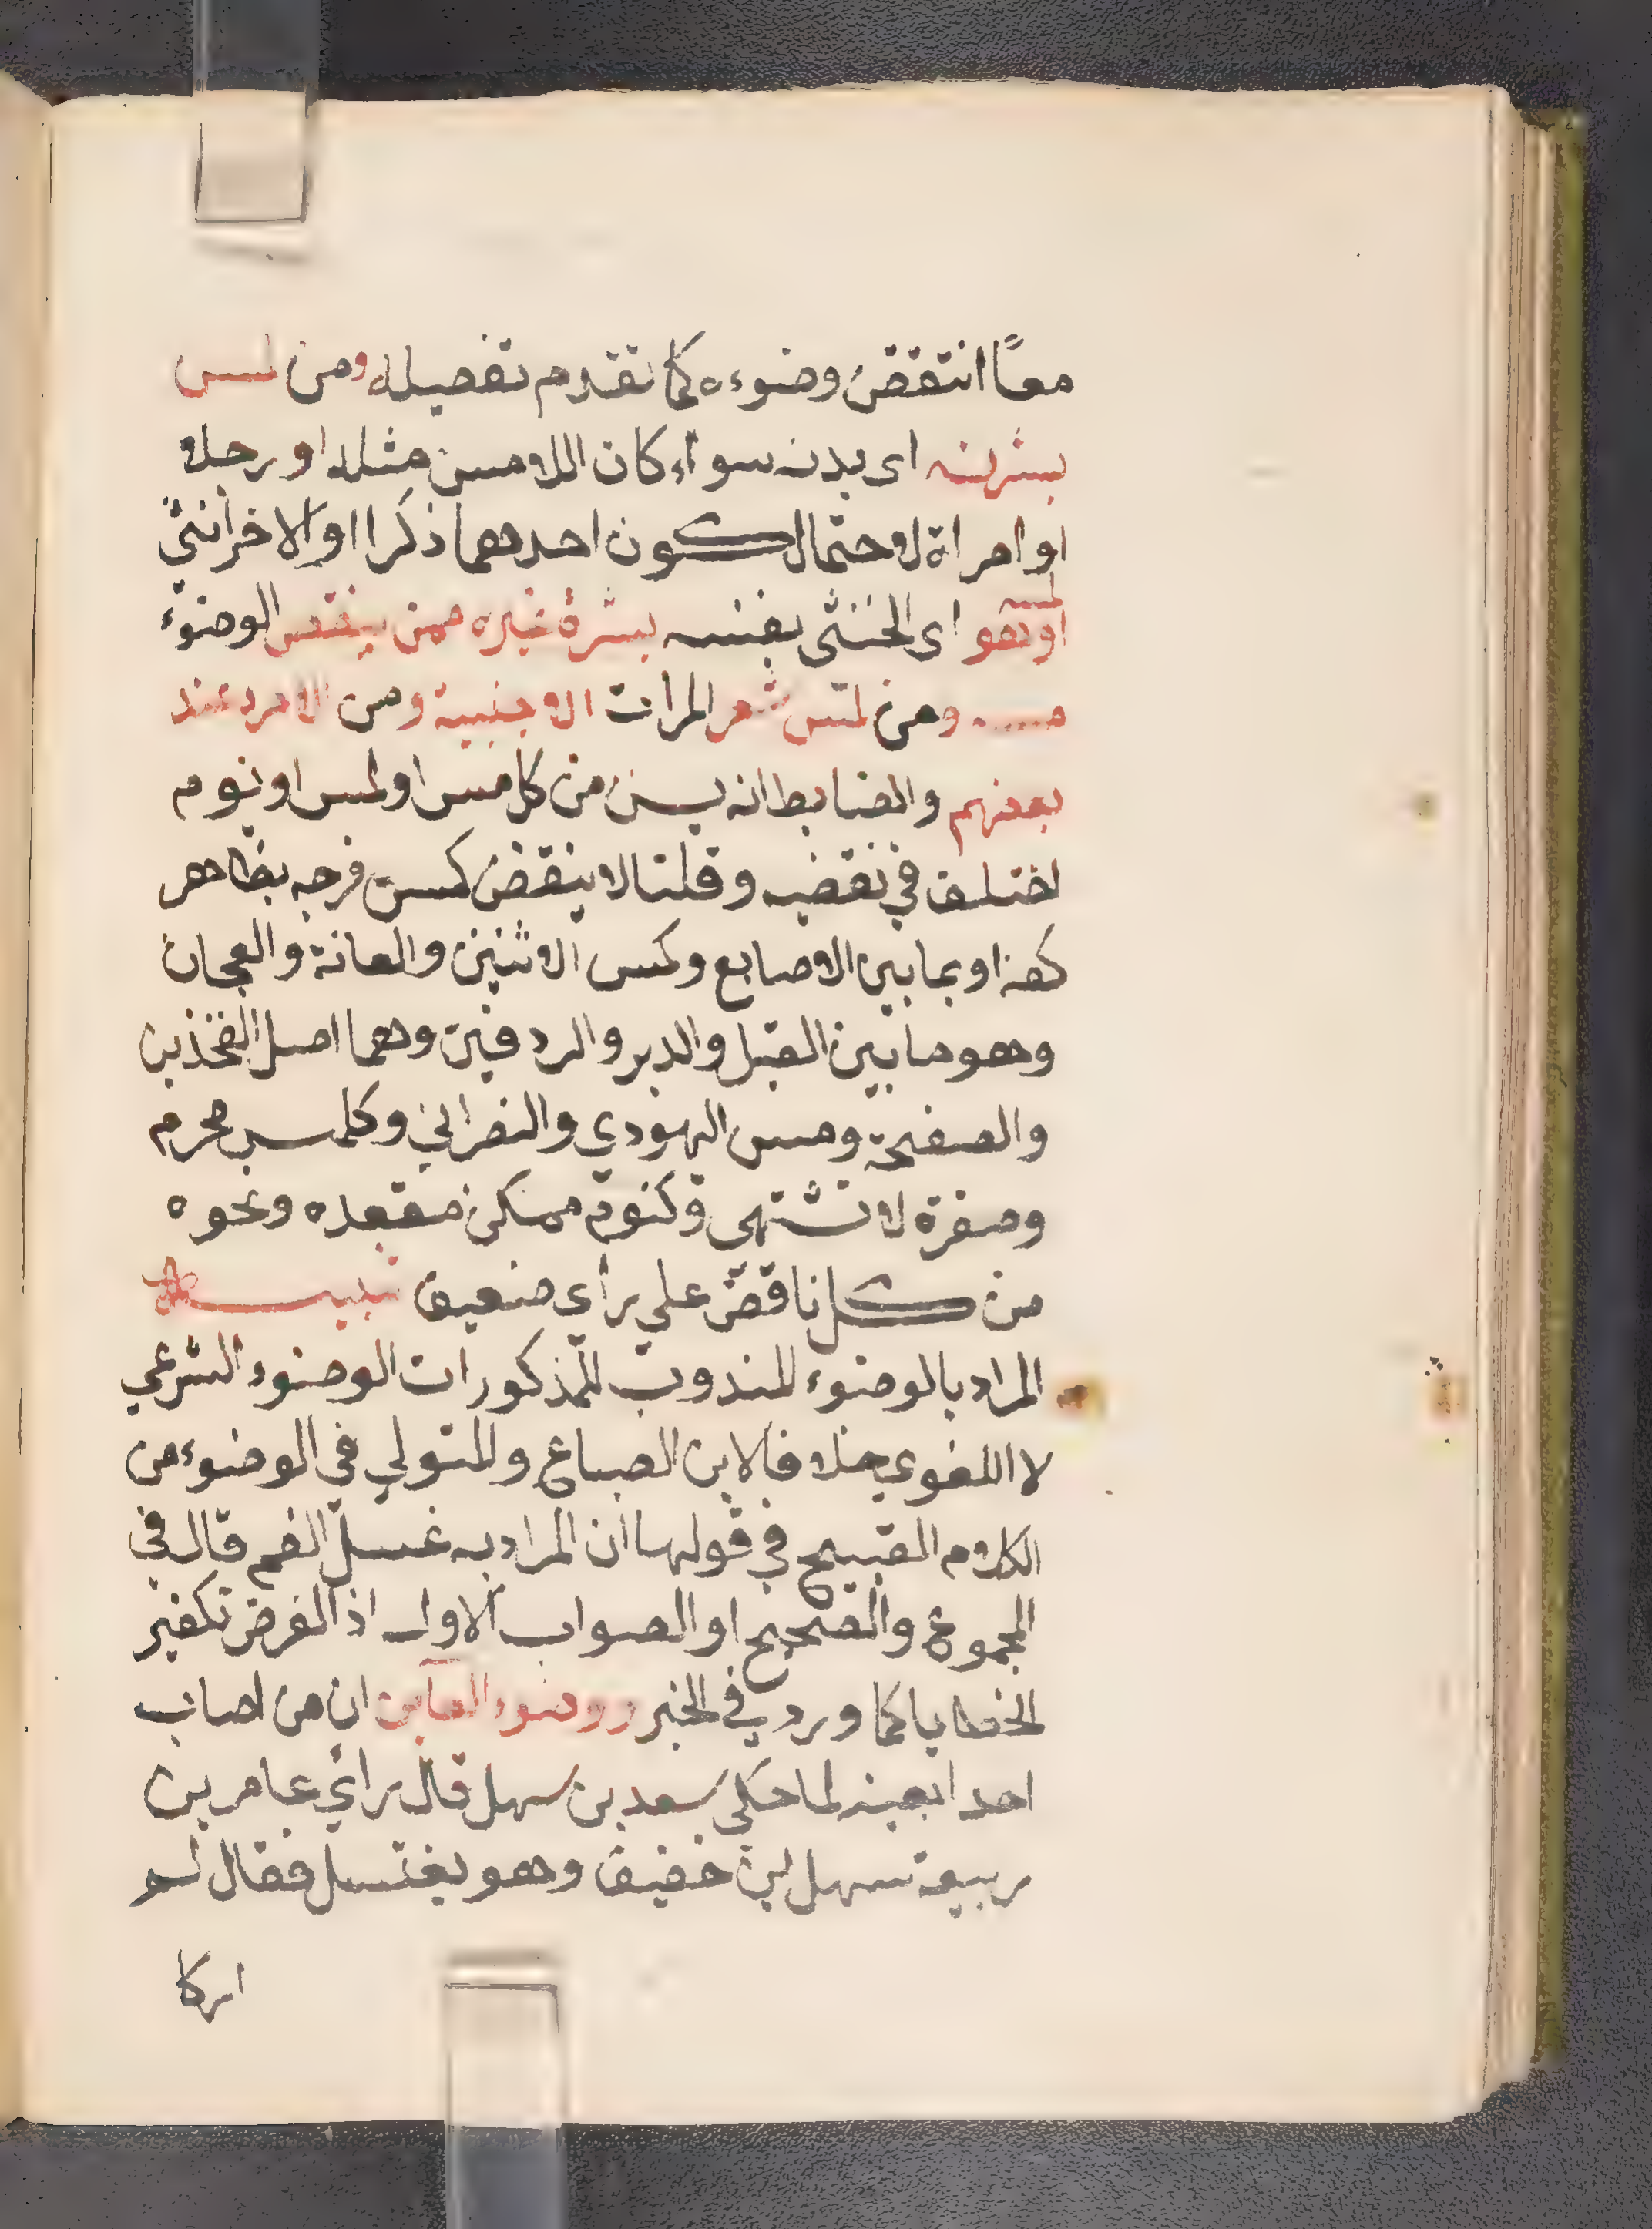 معًا انتقض وضوءه كما تقدم تفصيله ومن لمس
بشرته اى بدنه سوآء كان اللامس مثله او رجلا
او امراة لاحتمال كون احدهما ذكرا او الاخر انثى
او هو لمسه اى الخنثى بنفسه بشرة غيره ممن ينقض الوضوء
ومن لمس شعر المرات الاجنبية ومن الامرد عند
بعضهم والضابط انه يسن من كل مس او لمس او نوم
اختلف في نقضه وقلنا لا ينقض كمس فرجه بظاهر
كفه او بما بين الاصابع وكمس الانثيين والعانة والعجان
وهو ما بين القبل والدبر والردفين وهما اصل الفخذين
والصفحة ومس اليهودي والنصراني وكلمس محرم
وصغرة لا تشتهى وكنوم ممكن مقعده ونحوه
من كل ناقض علي راى ضعيف تنبيه
المراد بالوضوء المندوب للمذكورات الوضوء الشرعي
لا اللغوى خلافا لابن الصباغ والمتولي في الوضوء من
الكلام القبيح في قولهما ان المراد به غسل الفم قال في
المجموع والصحيح او الصواب الاول اذ الغرض تكفير
الخطايا كما ورد في الخبر ووضوء العآين ان من اصاب
احدا بعينه لما حكى سعد بن سهل قال راي عامر بن
ربيعة سهل بن خفيف وهو يغتسل فقال لم
اركا